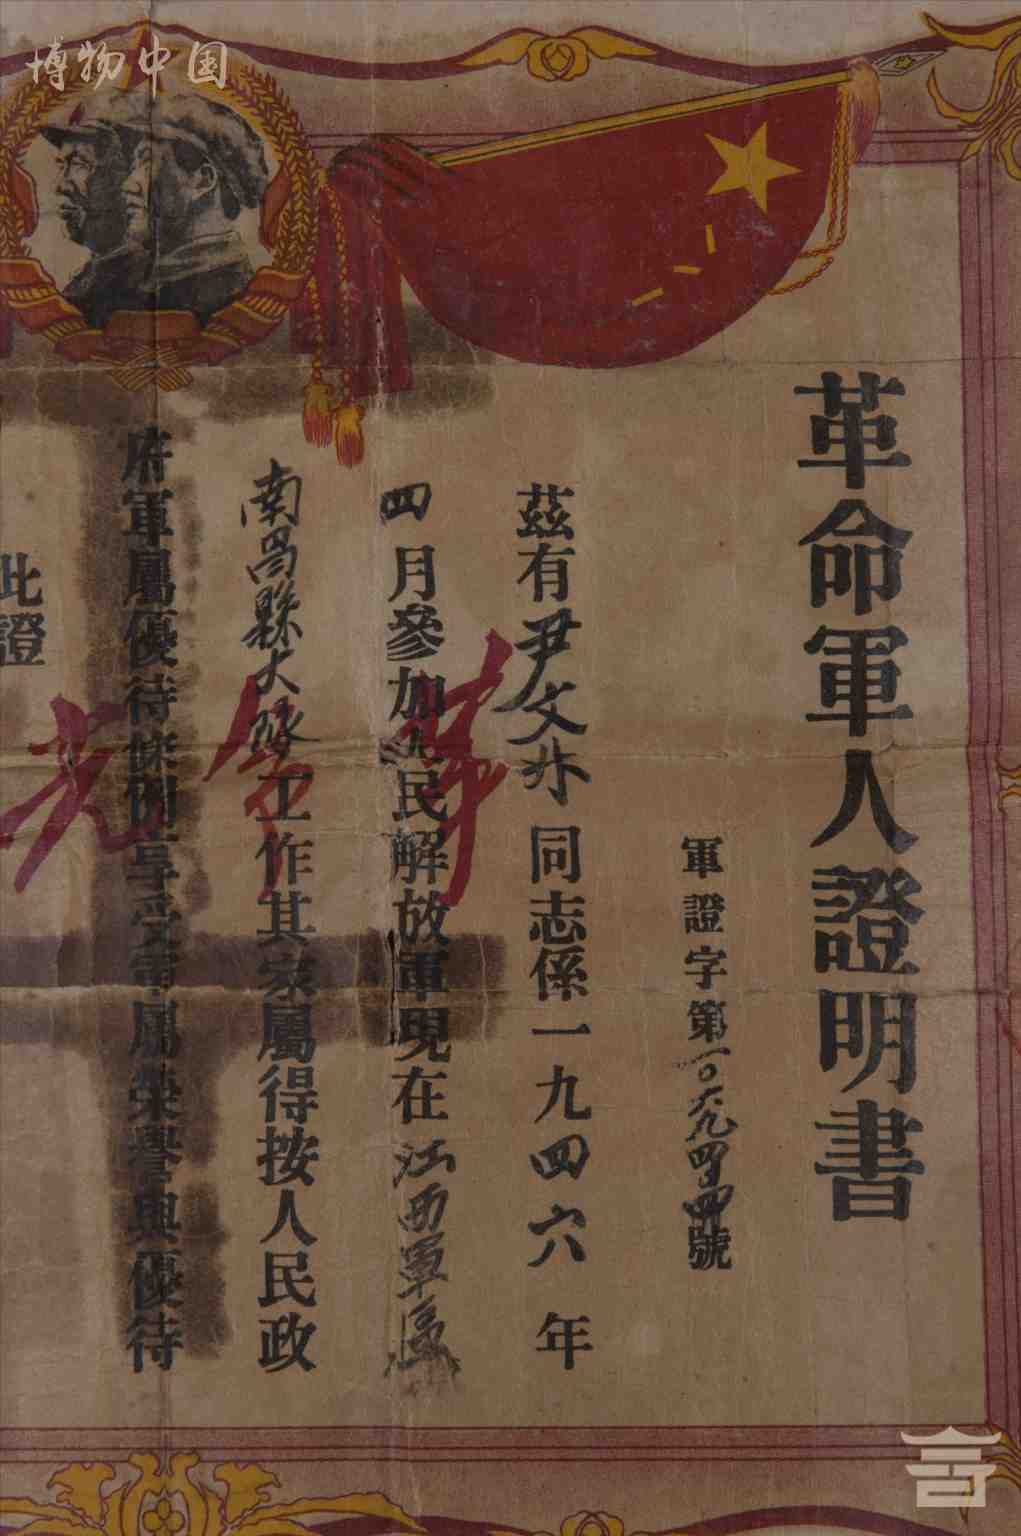 博物中国
革命軍人證明書
軍證字第一〇六九四四號
茲有尹文 同志係一九四六年
四月參加人民解放軍現在江西軍區
南昌縣大隊工作其家屬得按人民政
府軍屬優待條例享受軍屬榮譽與優待
此證
光 榮